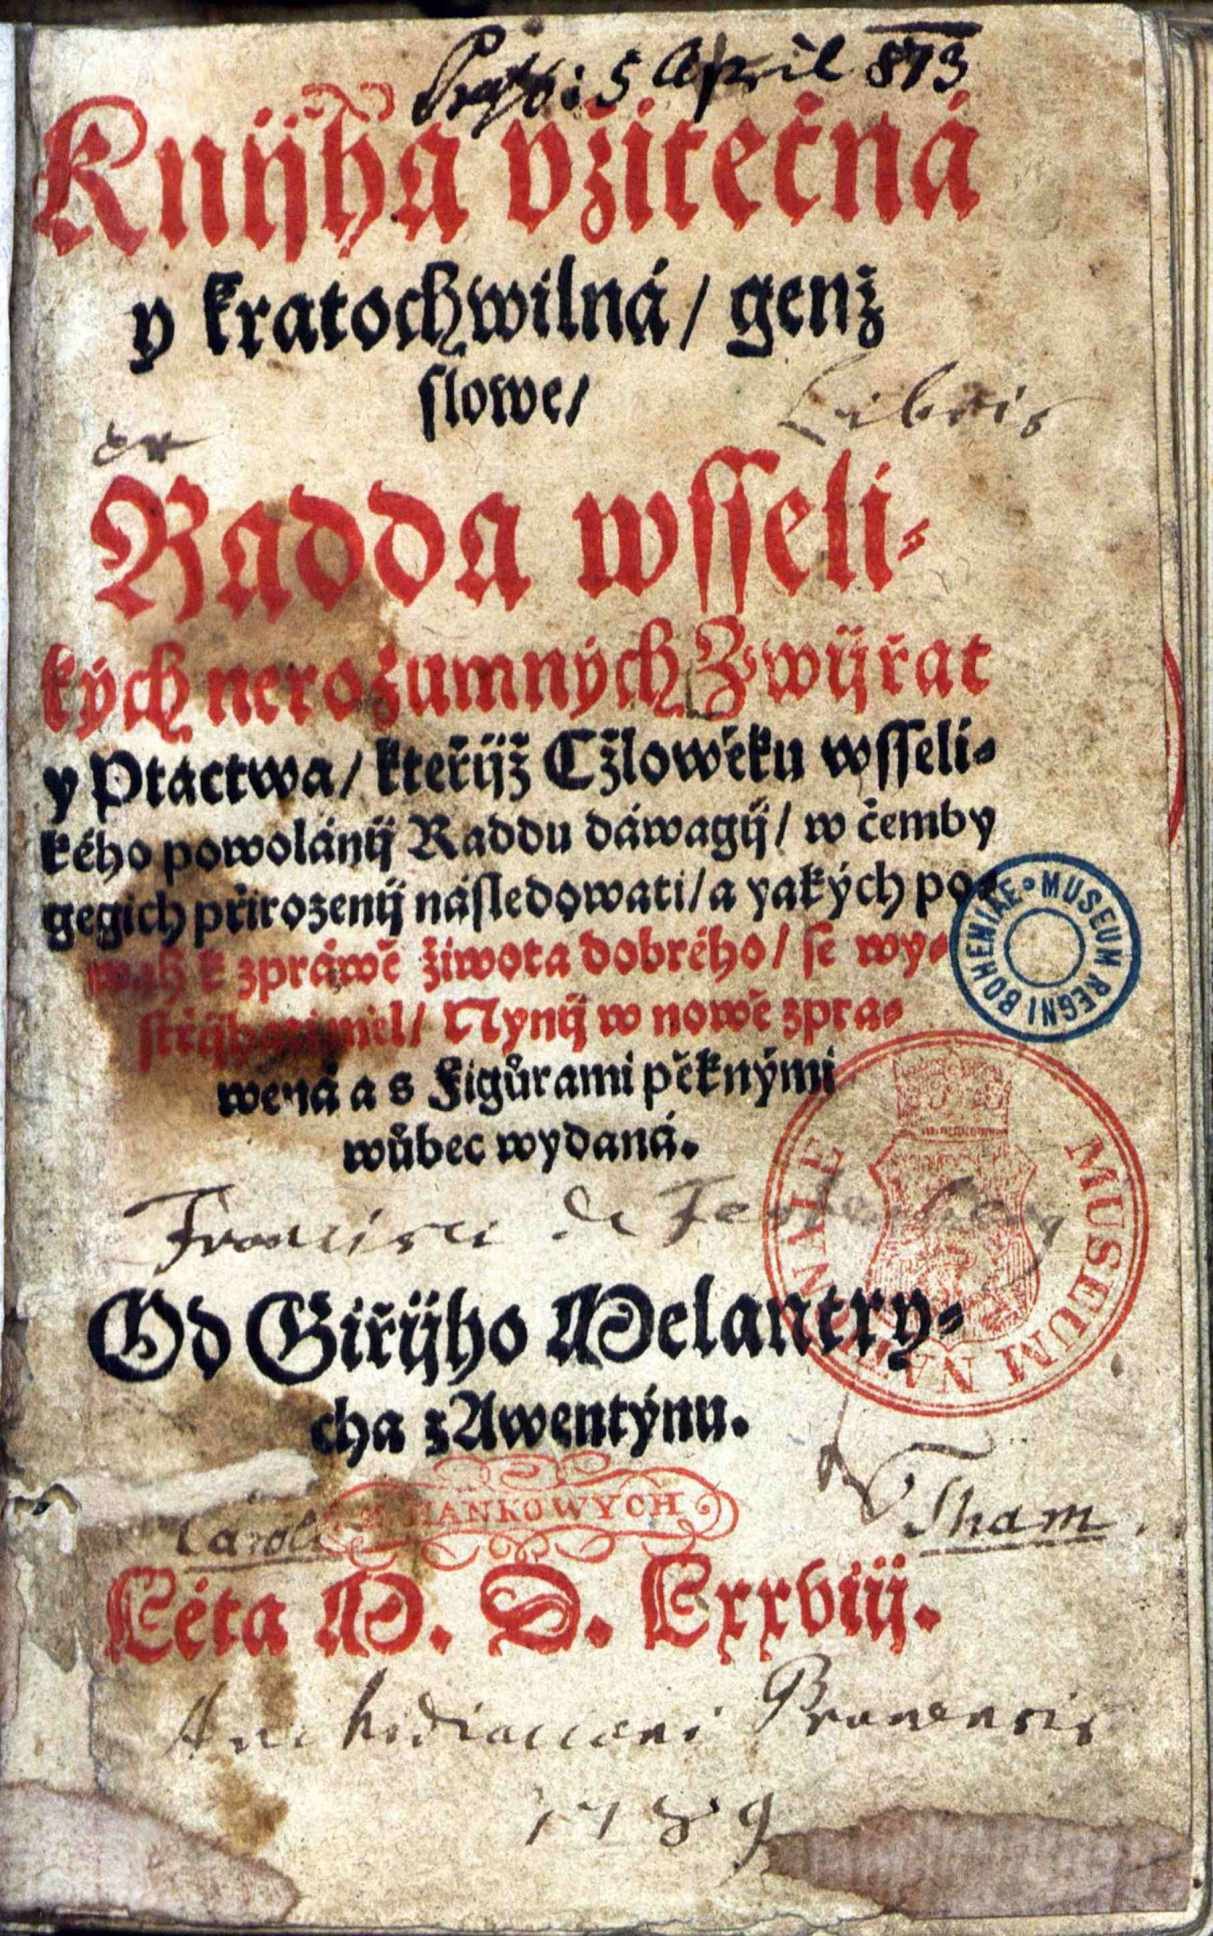 5 April 873
Knijha vžitečná
y kratochwilná / genž
slowe /
ex Libris
Radda wsseli-
kých nerozumných Zwijřat
y Ptactwa / kteřijž Cžlowěku wsseli-
kého powolánij Raddu dáwagij / w čemby
gegich přirozenij následowati / a yakých po-
wah k zpráwě žiwota dobrého / se wy-
střijhati měl / Nynij w nowě zpra-
wená a s Figůrami pěknými
wůbec wydaná.
MUSEUM REGNI BOHEMIAE
MUSEUM NATIONALE
Francisci de
Od Giřijho Melantry-
cha z Awentýnu.
HANKOWYCH
Caroli Tham
Léta M. D. Lxxviij.
Archidiaconi Brunensis
1789